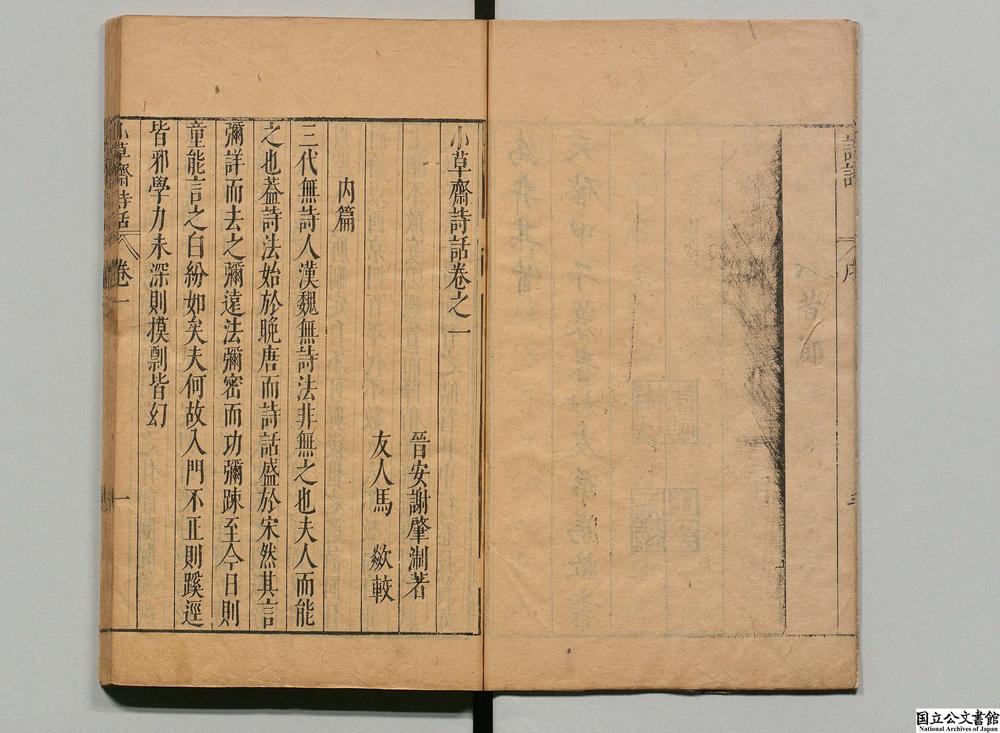 詩話
序
小草齋詩話卷之一
晉安謝肇淛著
友人馬　歘較
內篇
三代無詩人漢魏無詩法非無之也夫人而能
之也蓋詩法始於晚唐而詩話盛於宋然其言
彌詳而去之彌遠法彌密而功彌踈至今日則
童能言之白紛如矣夫何故入門不正則蹊逕
皆邪學力未深則摸剽皆幻
小草齋詩話
卷一
一
国立公文書館
National Archives of Japan